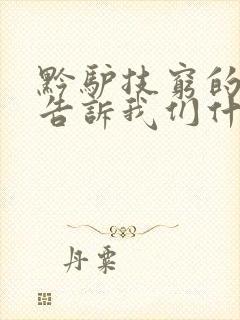 黔驴技穷的
告訴我们什
丹粟